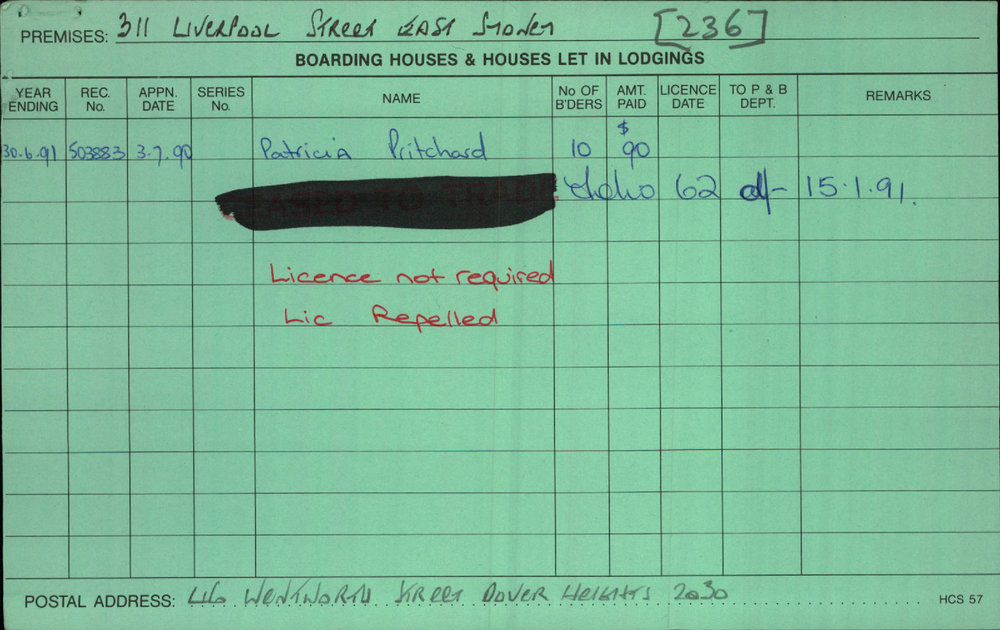 PREMISES: 311 LIVERPOOL STREET EAST SYDNEY [236]
BOARDING HOUSES & HOUSES LET IN LODGINGS
YEAR ENDING REC. No. APPN. DATE SERIES No. NAME No OF B'DERS AMT. PAID LICENCE DATE TO P & B DEPT. REMARKS
30.6.91 503883 3.7.90 Patricia Pritchard 10 $ 90
CEASED TO TRADE 62 15.1.91.
Licence not required
Lic Repelled
POSTAL ADDRESS: WENTWORTH STREET DOVER HEIGHTS 2030
HCS 57